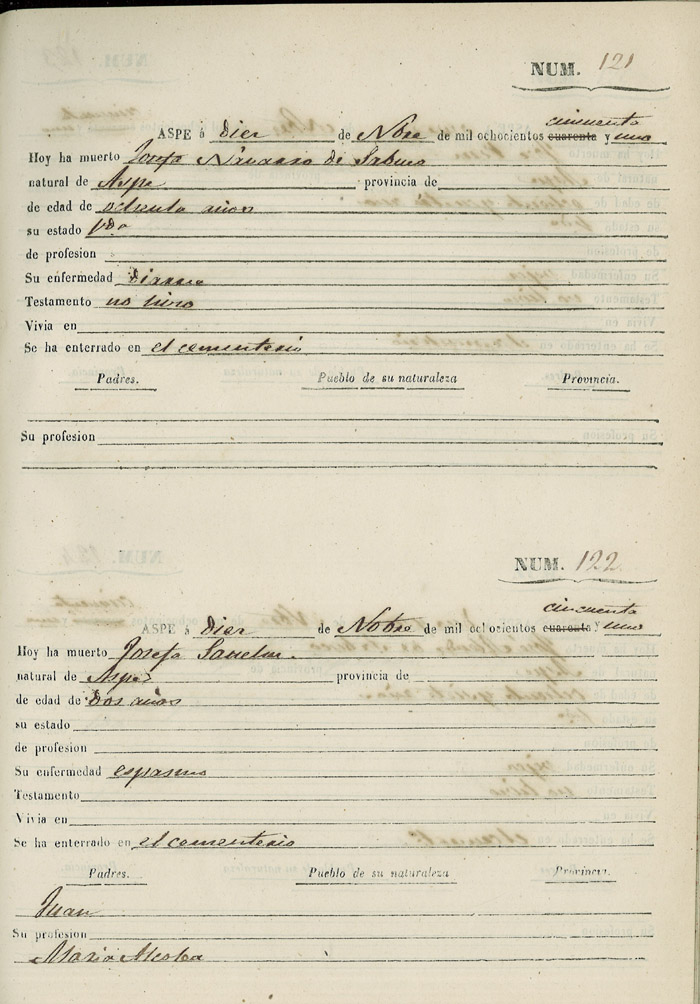 NUM. 121
cincuenta
ASPE á Diez de Nobre de mil ochocientos cuarenta y uno
Hoy ha muerto Josefa Navarro de
natural de Aspe provincia de
de edad de ochenta años
su estado Vda
de profesion
Su enfermedad Diarrea
Testamento no hizo
Vivia en
Se ha enterrado en el cementerio
Padres. Pueblo de su naturaleza Provincia.
Su profesion
NUM. 122
cincuenta
ASPE á Diez de Nobre de mil ochocientos cuarenta y uno
Hoy ha muerto Josefa Sanchez.
natural de Aspe provincia de
de edad de Dos años
su estado
de profesion
Su enfermedad espasmo
Testamento
Vivia en
Se ha enterrado en el cementerio
Padres. Pueblo de su naturaleza Provincia.
Juan
Su profesion
Maria